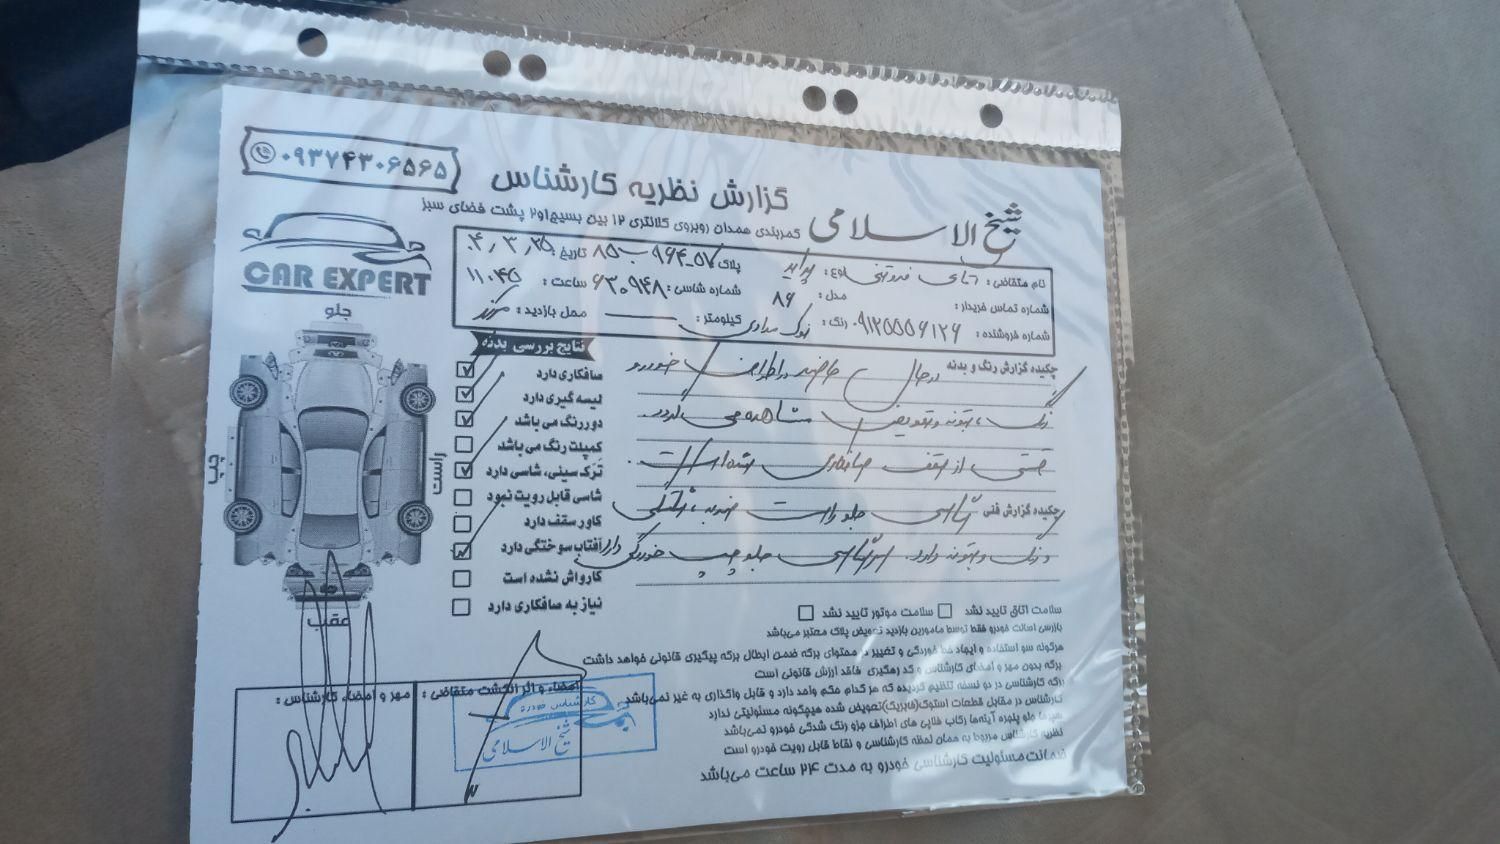 ۰۹۳۷۴۳۰۶۵۶۵
گزارش نظریه کارشناس
شیخ الاسلامی
کمربندی همدان روبروی کلانتری ۱۲ بین بسیج ۱و۲ پشت فضای سبز
CAR EXPERT
نام متقاضی: آقای نوع: پراید پلاک ۹۶۴ ب ۸۵ تاریخ: ۴٫۳٫۲۵
شماره تماس خریدار: مدل: ۸۶ شماره شاسی: ۶۳۰۹۴۸ ساعت: ۱۱:۴۵
شماره فروشنده: ۰۹۱۲۵۵۵۶۱۲۶ رنگ: نوک مدادی کیلومتر: محل بازدید: مرکز
چکیده گزارش رنگ و بدنه در حال حاضر در اطراف خودرو
رنگ، بتونه و تعویض مشاهده می گردد.
قسمتی از سقف صافکاری شده است.
چکیده گزارش فنی سرشاسی جلو راست ضربه،
و رنگ و بتونه دارد. سرشاسی جلو چپ خوردگی دارد
نتایج بررسی بدنه
صافکاری دارد
لیسه گیری دارد
دوررنگ می باشد
کمپلت رنگ می باشد
ترک سینی، شاسی دارد
شاسی قابل رویت نبود
کاور سقف دارد
آفتاب سوختگی دارد
کارواش نشده است
نیاز به صافکاری دارد
جلو
چپ
راست
عقب
سلامت اتاق تایید نشد سلامت موتور تایید نشد
بازرسی اصالت خودرو فقط توسط مامورین بازدید تعویض پلاک معتبر می‌باشد
هرگونه سو استفاده و ایجاد خط خوردگی و تغییر در محتوای برگه ضمن ابطال برگه پیگیری قانونی خواهد داشت
برگه بدون مهر و امضای کارشناس و کد رهگیری فاقد ارزش قانونی است
برگه کارشناسی در دو نسخه تنظیم گردیده که هر کدام حکم واحد دارد و قابل واگذاری به غیر نمی‌باشد
کارشناس در مقابل قطعات استوک(فابریک)تعویض شده هیچگونه مسئولیتی ندارد
جلو پنجره آینه‌ها رکاب قلاپی های اطراف جزو رنگ شدگی خودرو نمی‌باشد
نظریه کارشناس مربوط به همان لحظه کارشناسی و نقاط قابل رویت خودرو است
ضمانت مسئولیت کارشناسی خودرو به مدت ۲۴ ساعت می‌باشد
امضاء و اثر انگشت متقاضی:
مهر و امضاء کارشناس:
کارشناس خودرو
شیخ الاسلامی